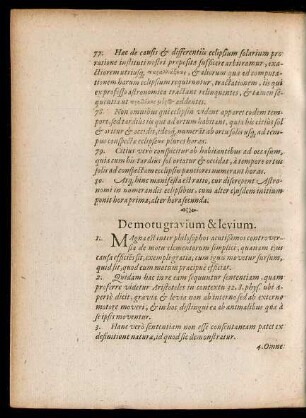 77. Hæc de causis & differentiis eclipsium solarium pro
ratione instituti nostri proposito sufficere arbitramur, exa-
& aliorum quæ ad computatio-
nem harum eclipsium requiruntur, tractationem, iis qui
ex professo astronomica tractant relinquentes, & tamen se-
quentia ut addentes.
78. Non omnibus quis eclipsin vident apparet eodem tem-
pore, sed tardius iis qui ad ortum habitant, quia his citius sol
& oritur & occidit, ideoque numeris ab ortu solis usi, ad tem-
pus conspectu eclipseos plures horas.
79. Citius vero conspicitur ab habitantibus ad occasum,
quia cum his tardius sol oriatur & occidat, à tempore ortus
solis ad conspectum pauciores numerant horas.
80. Atque hinc manifesta est ratio, cur discrepent Astro-
nomi in numerandis eclipsibus, cum alter ejusdem initium
ponit hora prima, alter hora secunda.
De motu gravium & levium.
1. Magna est inter philosophos acutissimos controver-
sia de motu elementorum simplici, quænam ejus
causa efficiens sit, exempli gratia, cum ignis movetur sursum,
quid sit, quod eum motum præcipue efficiat.
2. Quidam hac in re eam sequuntur sententiam, quam
proferre videtur Aristoteles in contextu 32. l. phys. ubi a-
pertè dicit, gravia & levia non ab interno sed ab externo
motore moveri, & in hoc distingui ea ab animalibus quæ à
se ipsis moventur.
3. Hanc verò sententiam non esse consentaneam patet ex
definitione naturæ, id quod sic demonstratur.
4. Omne